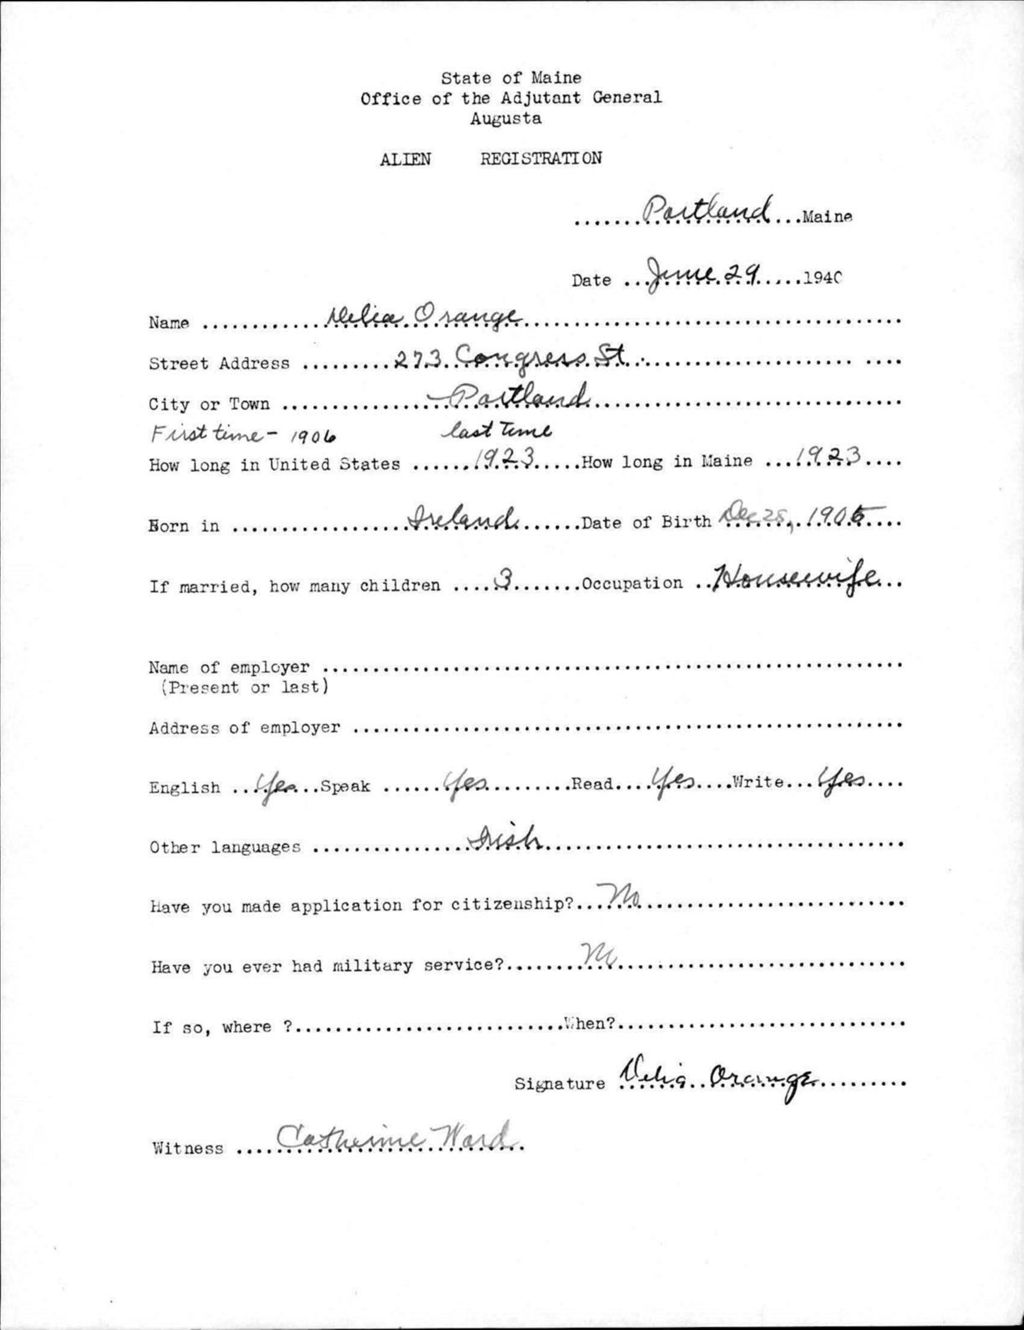 State of Maine
Office of the Adjutant General
Augusta
ALIEN REGISTRATION
.......Portland...Maine
Date ...June 29.....1940
Name ............Delia Orange..............................
Street Address .........273 Congress St......................... ....
City or Town ...............Portland...............................
First time - 1906 last time
How long in United States ......1923.....How long in Maine ...1923....
Born in .................Ireland......Date of Birth Dec 28, 1905....
If married, how many children ....3.......Occupation ..Housewife...
Name of employer ..........................................................
(Present or last)
Address of employer .......................................................
English ...Yes...Speak ......Yes.........Read....Yes....Write...Yes....
Other languages ................Irish....................................
Have you made application for citizenship?...No..........................
Have you ever had military service?........No.............................
If so, where ?...........................When?.............................
Signature Delia Orange.........
Witness ....Catherine Ward.